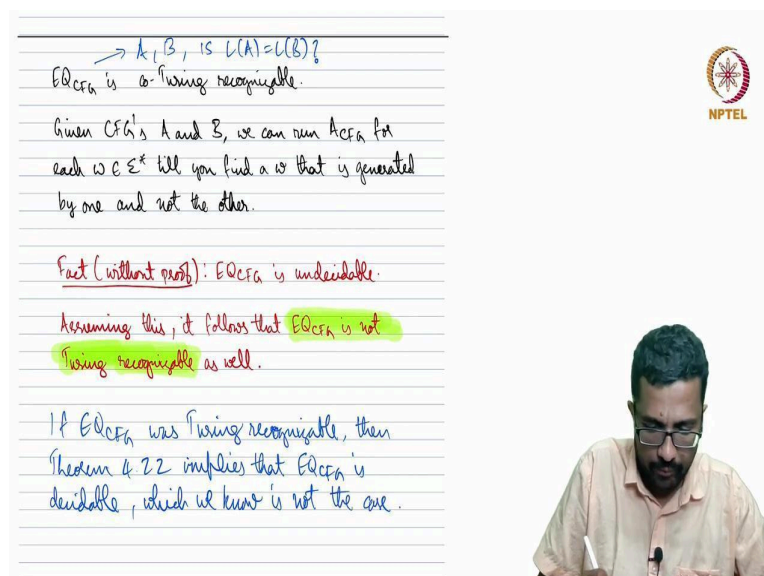 → A, B, is L(A)=L(B)?
EQCFG is co-Turing recognizable.
Given CFG's A and B, we can run ACFG for
each w ∈ Σ* till you find a w that is generated
by one and not the other.
Fact (without proof): EQCFG is undecidable.
Assuming this, it follows that EQCFG is not
Turing recognizable as well.
If EQCFG was Turing recognizable, then
Theorem 4.22 implies that EQCFG is
decidable, which we know is not the case.
NPTEL